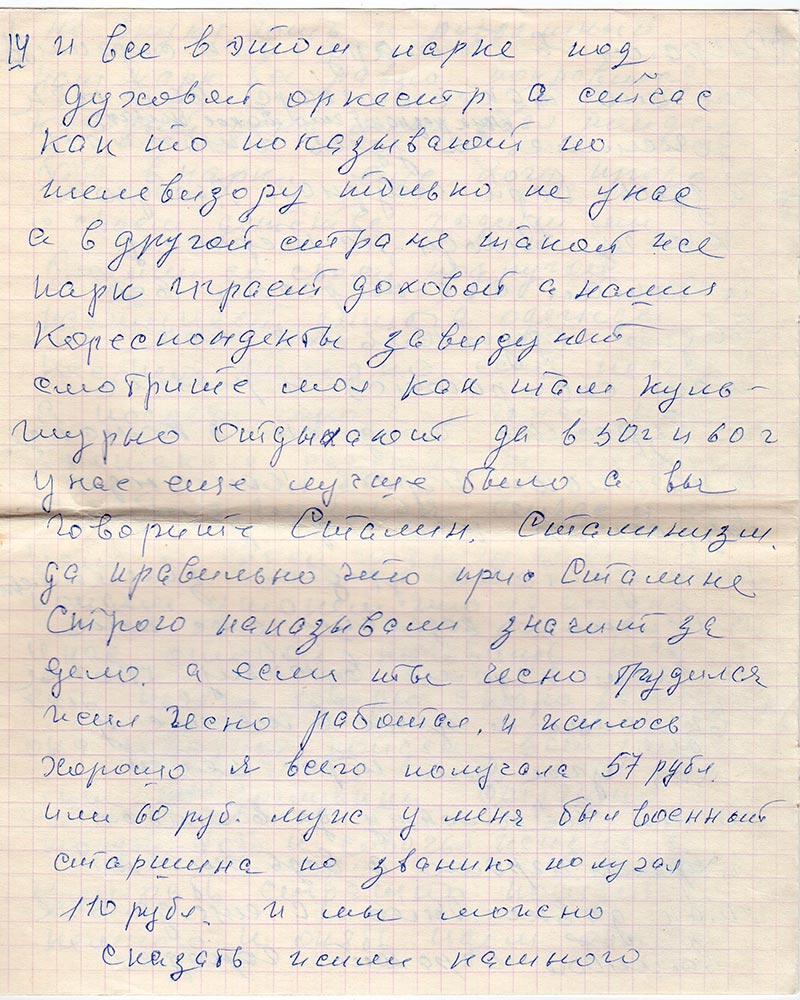 14 и все в этом парке под
духовой оркестр. а сейчас
как то показывают по
телевизору только не унас
а в другой стране такой же
парк играет доховой а наши
Кореспонденты завидуют
смотрите мол как там куль-
турно отдыхают да в 50г и 60г
у нас еще лучше было а вы
говорите Сталин. Сталинизм.
да правильно что при Сталине
Строго наказывали значит за
дело. а если ты чесно трудился
жил чесно работал. и жилось
хорошо я всего получала 57 рубл.
или 60 руб. муж у меня был военный
старшина по званию получал
110 рубл. и мы можно
Сказать жили намного